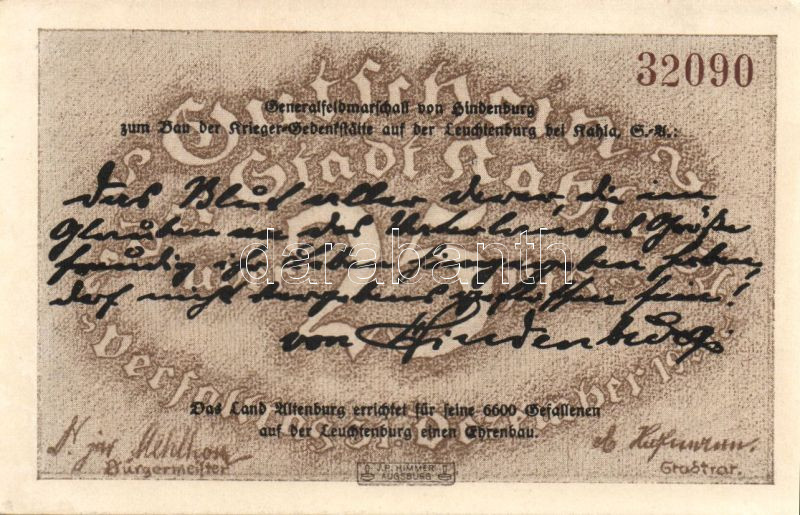 32090
Gutschein
Generalfeldmarschall von Hindenburg
zum Bau der Krieger-Gedenkstätte auf der Leuchtenburg bei Kahla, S.-A.:
Stadt Kahla
Das Blut aller derer, die im
Glauben an des Vaterlandes Größe
freudig ihr Leben hingegeben haben,
darf nicht vergebens geflossen sein!
25
von Hindenburg.
darabanth
Das Land Altenburg errichtet für seine 6600 Gefallenen
auf der Leuchtenburg einen Ehrenbau.
Bürgermeister
Stadtrat.
J.P. HIMMER
AUGSBURG